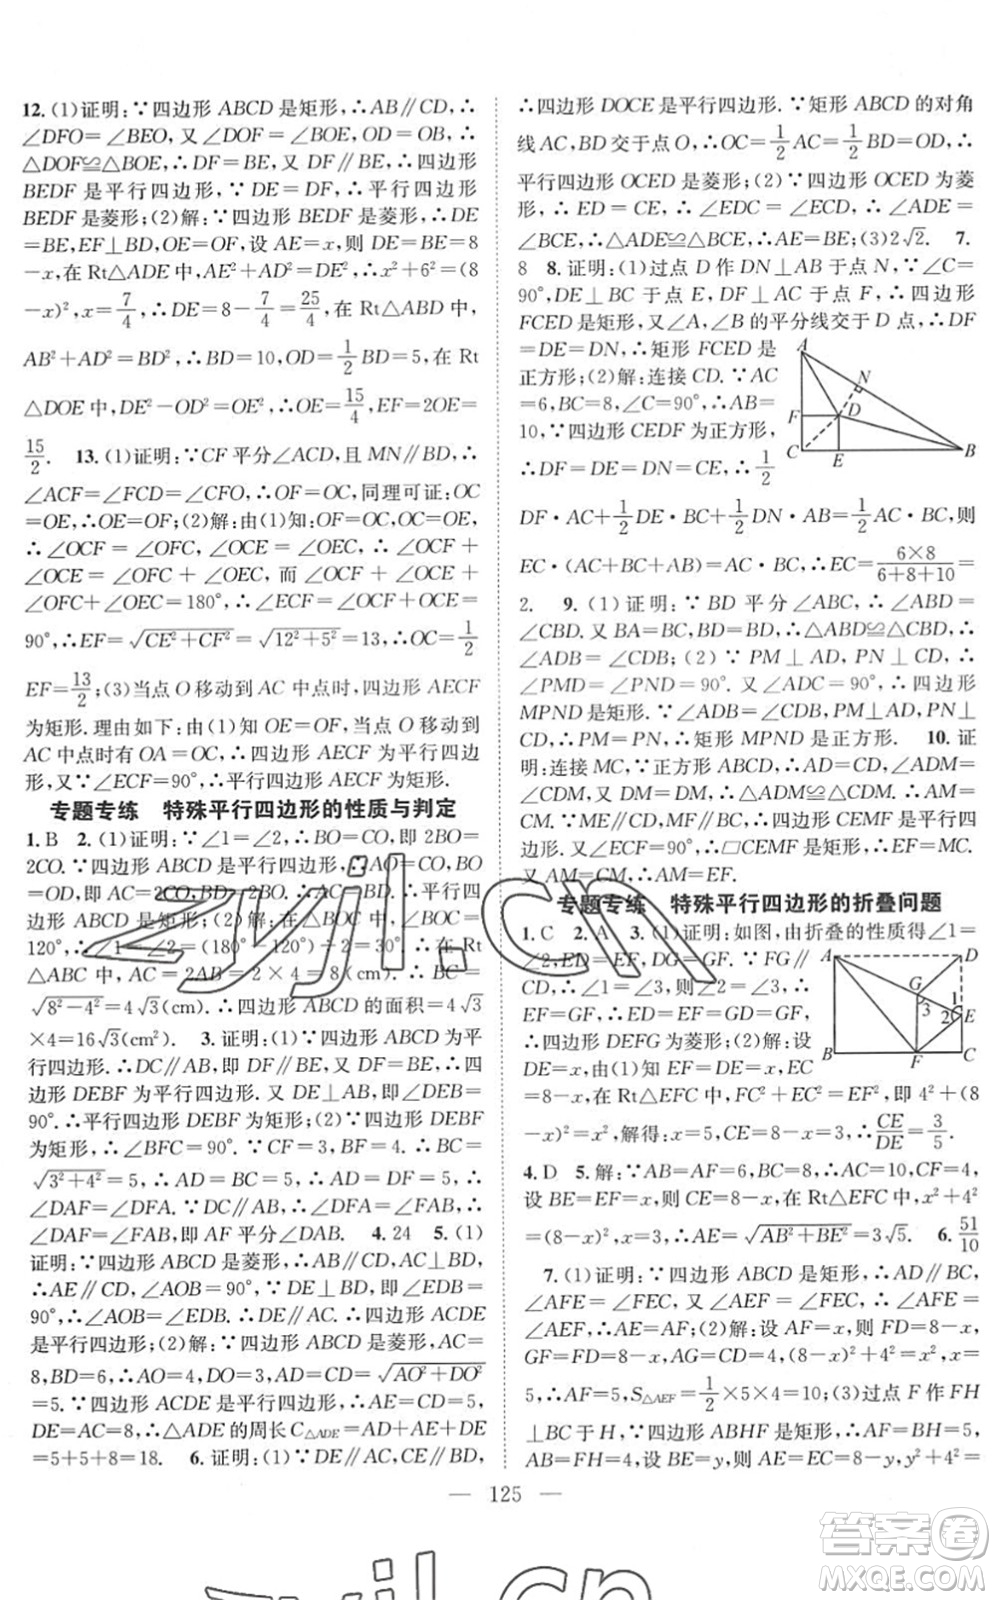 12. (1)证明:∵四边形 ABCD 是矩形,∴AB∥CD,∴
∠DFO=∠BEO, 又∠DOF=∠BOE, OD=OB, ∴
△DOF≌△BOE,∴DF=BE,又 DF∥BE,∴四边形
BEDF 是平行四边形,∵DE=DF,∴平行四边形
BEDF 是菱形;(2)解:∵四边形 BEDF 是菱形,∴DE
=BE,EF⊥BD,OE=OF,设 AE=x,则 DE=BE=8
-x,在 Rt△ADE 中,AE²+AD²=DE²,∴x²+6²=(8
-x)²,x=7/4,∴DE=8-7/4=25/4,在 Rt△ABD 中,
AB²+AD²=BD²,∴BD=10,OD=1/2BD=5,在 Rt
△DOE 中,DE²-OD²=OE²,∴OE=15/4,EF=2OE=
15/2. 13. (1)证明:∵CF 平分∠ACD,且 MN∥BD,∴
∠ACF=∠FCD=∠CFO,∴OF=OC,同理可证:OC
=OE,∴OE=OF;(2)解:由(1)知:OF=OC,OC=OE,
∴∠OCF=∠OFC, ∠OCE=∠OEC, ∴∠OCF+
∠OCE=∠OFC+∠OEC, 而 ∠OCF+∠OCE+
∠OFC+∠OEC=180°,∴∠ECF=∠OCF+∠OCE=
90°,∴EF=√(CE²+CF²)=√(12²+5²)=13,∴OC=1/2
EF=13/2;(3)当点 O 移动到 AC 中点时,四边形 AECF
为矩形.理由如下:由(1)知 OE=OF,当点 O 移动到
AC 中点时有 OA=OC,∴四边形 AECF 为平行四边
形,又∵∠ECF=90°,∴平行四边形 AECF 为矩形.
专题专练 特殊平行四边形的性质与判定
1. B 2. (1)证明:∵∠1=∠2,∴BO=CO,即 2BO=
2CO.∵四边形 ABCD 是平行四边形,∴AO=CO,BO
=OD,即 AC=2CO,BD=2BO,∴AC=BD,∴平行四
边形 ABCD 是矩形;(2)解:∵在△BOC 中,∠BOC=
120°,∴∠1=∠2=(180°-120°)÷2=30°,∴在 Rt
△ABC 中,AC=2AB=2×4=8(cm),∴BC=
√(8²-4²)=4√3(cm).∴四边形 ABCD 的面积=4√3
×4=16√3(cm²). 3. 证明:(1)∵四边形 ABCD 为平
行四边形.∴DC∥AB,即 DF∥BE,又∵DF=BE,∴四
边形 DEBF 为平行四边形.又 DE⊥AB,∴∠DEB=
90°.∴平行四边形 DEBF 为矩形;(2)∵四边形 DEBF
为矩形,∴∠BFC=90°.∵CF=3,BF=4.∴BC=
√(3²+4²)=5,∴AD=BC=5,∴AD=DF=5,∴
∠DAF=∠DFA.∵AB∥CD,∴∠FAB=∠DFA,∴
∠DAF=∠DFA,即 AF 平分∠DAB. 4. 24 5. (1)
证明:∵四边形 ABCD 是菱形,∴AB∥CD,AC⊥BD,
∴AE∥CD,∠AOB=90°,∵DE⊥BD,即∠EDB=
90°,∴∠AOB=∠EDB.∴DE∥AC.∴四边形 ACDE
是平行四边形;(2)解:∵四边形 ABCD 是菱形,AC=
8,BD=6,∴AO=4,DO=3,AD=CD=√(AO²+DO²)
=5.∵四边形 ACDE 是平行四边形,∴AE=CD=5,
DE=AC=8,∴△ADE 的周长 C△ADE=AD+AE+DE
=5+5+8=18. 6. 证明:(1)∵DE∥AC,CE∥BD,
∴四边形 DOCE 是平行四边形.∵矩形 ABCD 的对角
线 AC,BD 交于点 O,∴OC=1/2AC=1/2BD=OD,∴
平行四边形 OCED 是菱形;(2)∵四边形 OCED 为菱
形,∴ED=CE,∴∠EDC=∠ECD,∴∠ADE=
∠BCE,∴△ADE≌△BCE,∴AE=BE;(3)2√2. 7.
8 8. 证明:(1)过点 D 作 DN⊥AB 于点 N,∵∠C=
90°,DE⊥BC 于点 E,DF⊥AC 于点 F,∴四边形
FCED 是矩形,又∠A,∠B 的平分线交于 D 点,∴DF
=DE=DN,∴矩形 FCED 是
正方形;(2)解:连接 CD.∵AC
=6,BC=8,∠C=90°,∴AB=
10,∵四边形 CEDF 为正方形,
∴DF=DE=DN=CE,∴1/2
DF·AC+1/2DE·BC+1/2DN·AB=1/2AC·BC,则
EC·(AC+BC+AB)=AC·BC,∴EC=6×8/(6+8+10)=
2. 9. (1)证明:∵BD 平分∠ABC,∴∠ABD=
∠CBD.又 BA=BC,BD=BD,∴△ABD≌△CBD.
∴∠ADB=∠CDB;(2)∵PM⊥AD,PN⊥CD,
∴∠PMD=∠PND=90°.又∠ADC=90°,∴四边形
MPND 是矩形.∵∠ADB=∠CDB,PM⊥AD,PN⊥
CD,∴PM=PN,∴矩形 MPND 是正方形. 10. 证
明:连接 MC,∵正方形 ABCD,∴AD=CD,∠ADM=
∠CDM, 又 DM=DM, ∴△ADM≌△CDM, ∴AM=
CM.∵ME∥CD,MF∥BC,∴四边形 CEMF 是平行四
边形.又∠ECF=90°,∴□CEMF 是矩形,∴EF=MC.
又 AM=CM,∴AM=EF.
专题专练 特殊平行四边形的折叠问题
1. C 2. A 3. (1)证明:如图,由折叠的性质得∠1=
∠2,ED=EF,GD=GF.∵FG∥
CD,∴∠1=∠3,则∠2=∠3,∴
EF=GF,∴EF=ED=GD=GF,
∴四边形 DEFG 为菱形;(2)解:设
DE=x,由(1)知 EF=DE=x,EC
=8-x,在 Rt△EFC 中,FC²+EC²=EF²,即 4²+(8
-x)²=x²,解得:x=5,CE=8-x=3,∴CE/DE=3/5.
4. D 5. 解:∵AB=AF=6,BC=8,∴AC=10,CF=4,
设 BE=EF=x,则 CE=8-x,在 Rt△EFC 中,x²+4²
=(8-x)²,∴x=3,∴AE=√(AB²+BE²)=3√5. 6. 51/10
7. (1)证明:∵四边形 ABCD 是矩形,∴AD∥BC,
∠AFE=∠FEC,又∠AEF=∠FEC,∴∠AFE=
∠AEF,∴AE=AF;(2)解:设 AF=x,则 FD=8-x,
GF=FD=8-x,AG=CD=4,(8-x)²+4²=x²,∴x=
5,∴AF=5,S△AEF=1/2×5×4=10;(3)过点 F 作 FH
⊥BC 于 H,∵四边形 ABHF 是矩形,∴AF=BH=5,
AB=FH=4,设 BE=y,则 AE=EC=8-y,y²+4²=
— 125 —
A N F D C E B
A D G 3 1 2 E B F C
zyjl.cn
答案圈
MXQE.COM